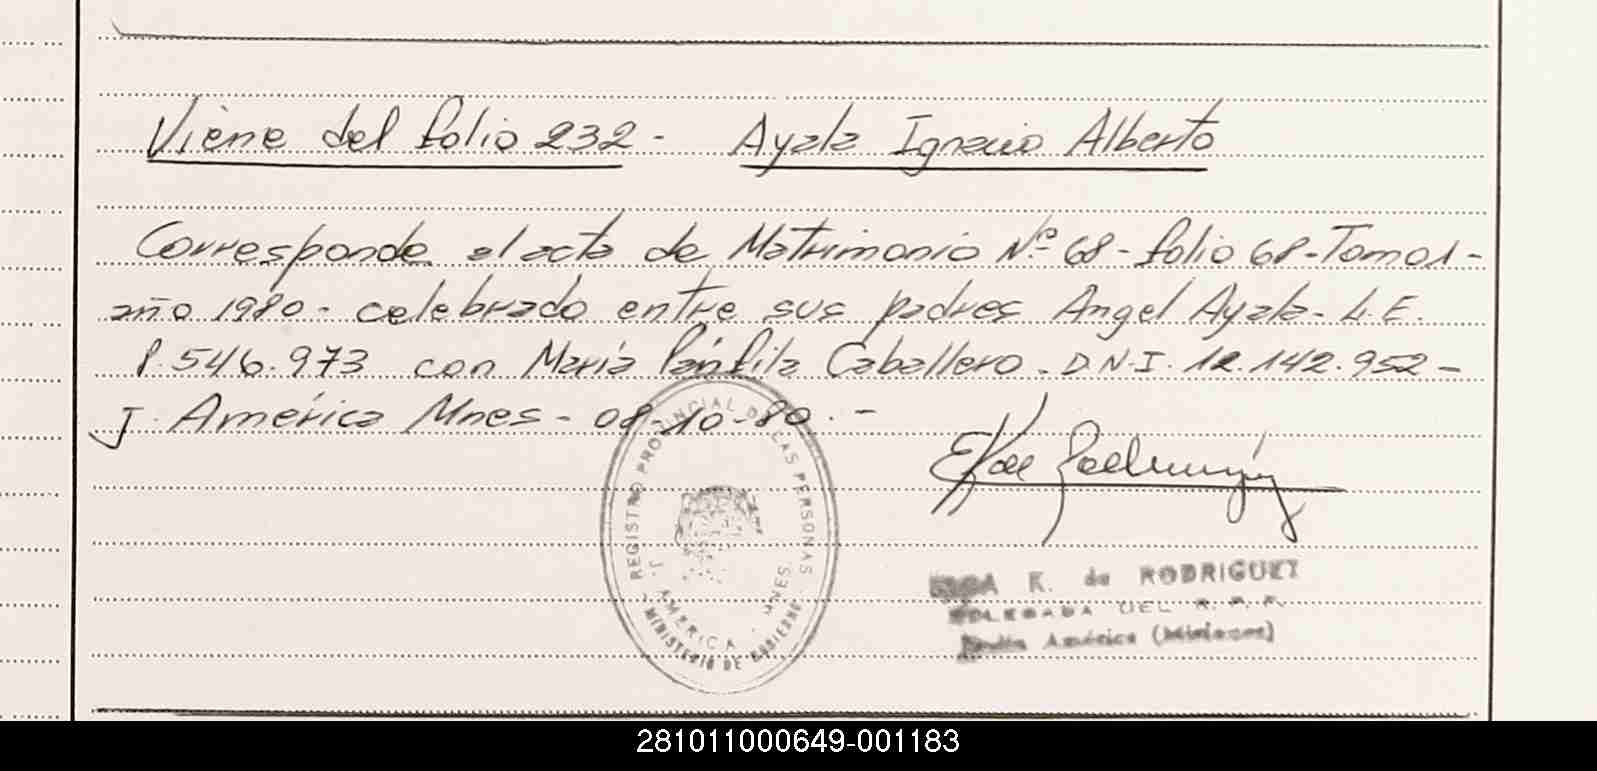 Viene del folio 232 - Ayala Ignacio Alberto
Corresponde el acta de Matrimonio Nº 68 - folio 68 - Tomo 1 -
año 1980 - celebrado entre sus padres Angel Ayala - L.E.
8.546.973 con María Pánfila Caballero - D.N.I. 12.142.952 -
J. América Mnes - 08-10-80. -
REGISTRO PROVINCIAL DE LAS PERSONAS
J. AMERICA - MNES.
- MINISTERIO DE GOBIERNO -
K. de RODRIGUEZ
DELEGADA DEL R. P. P.
América (Misiones)
281011000649-001183